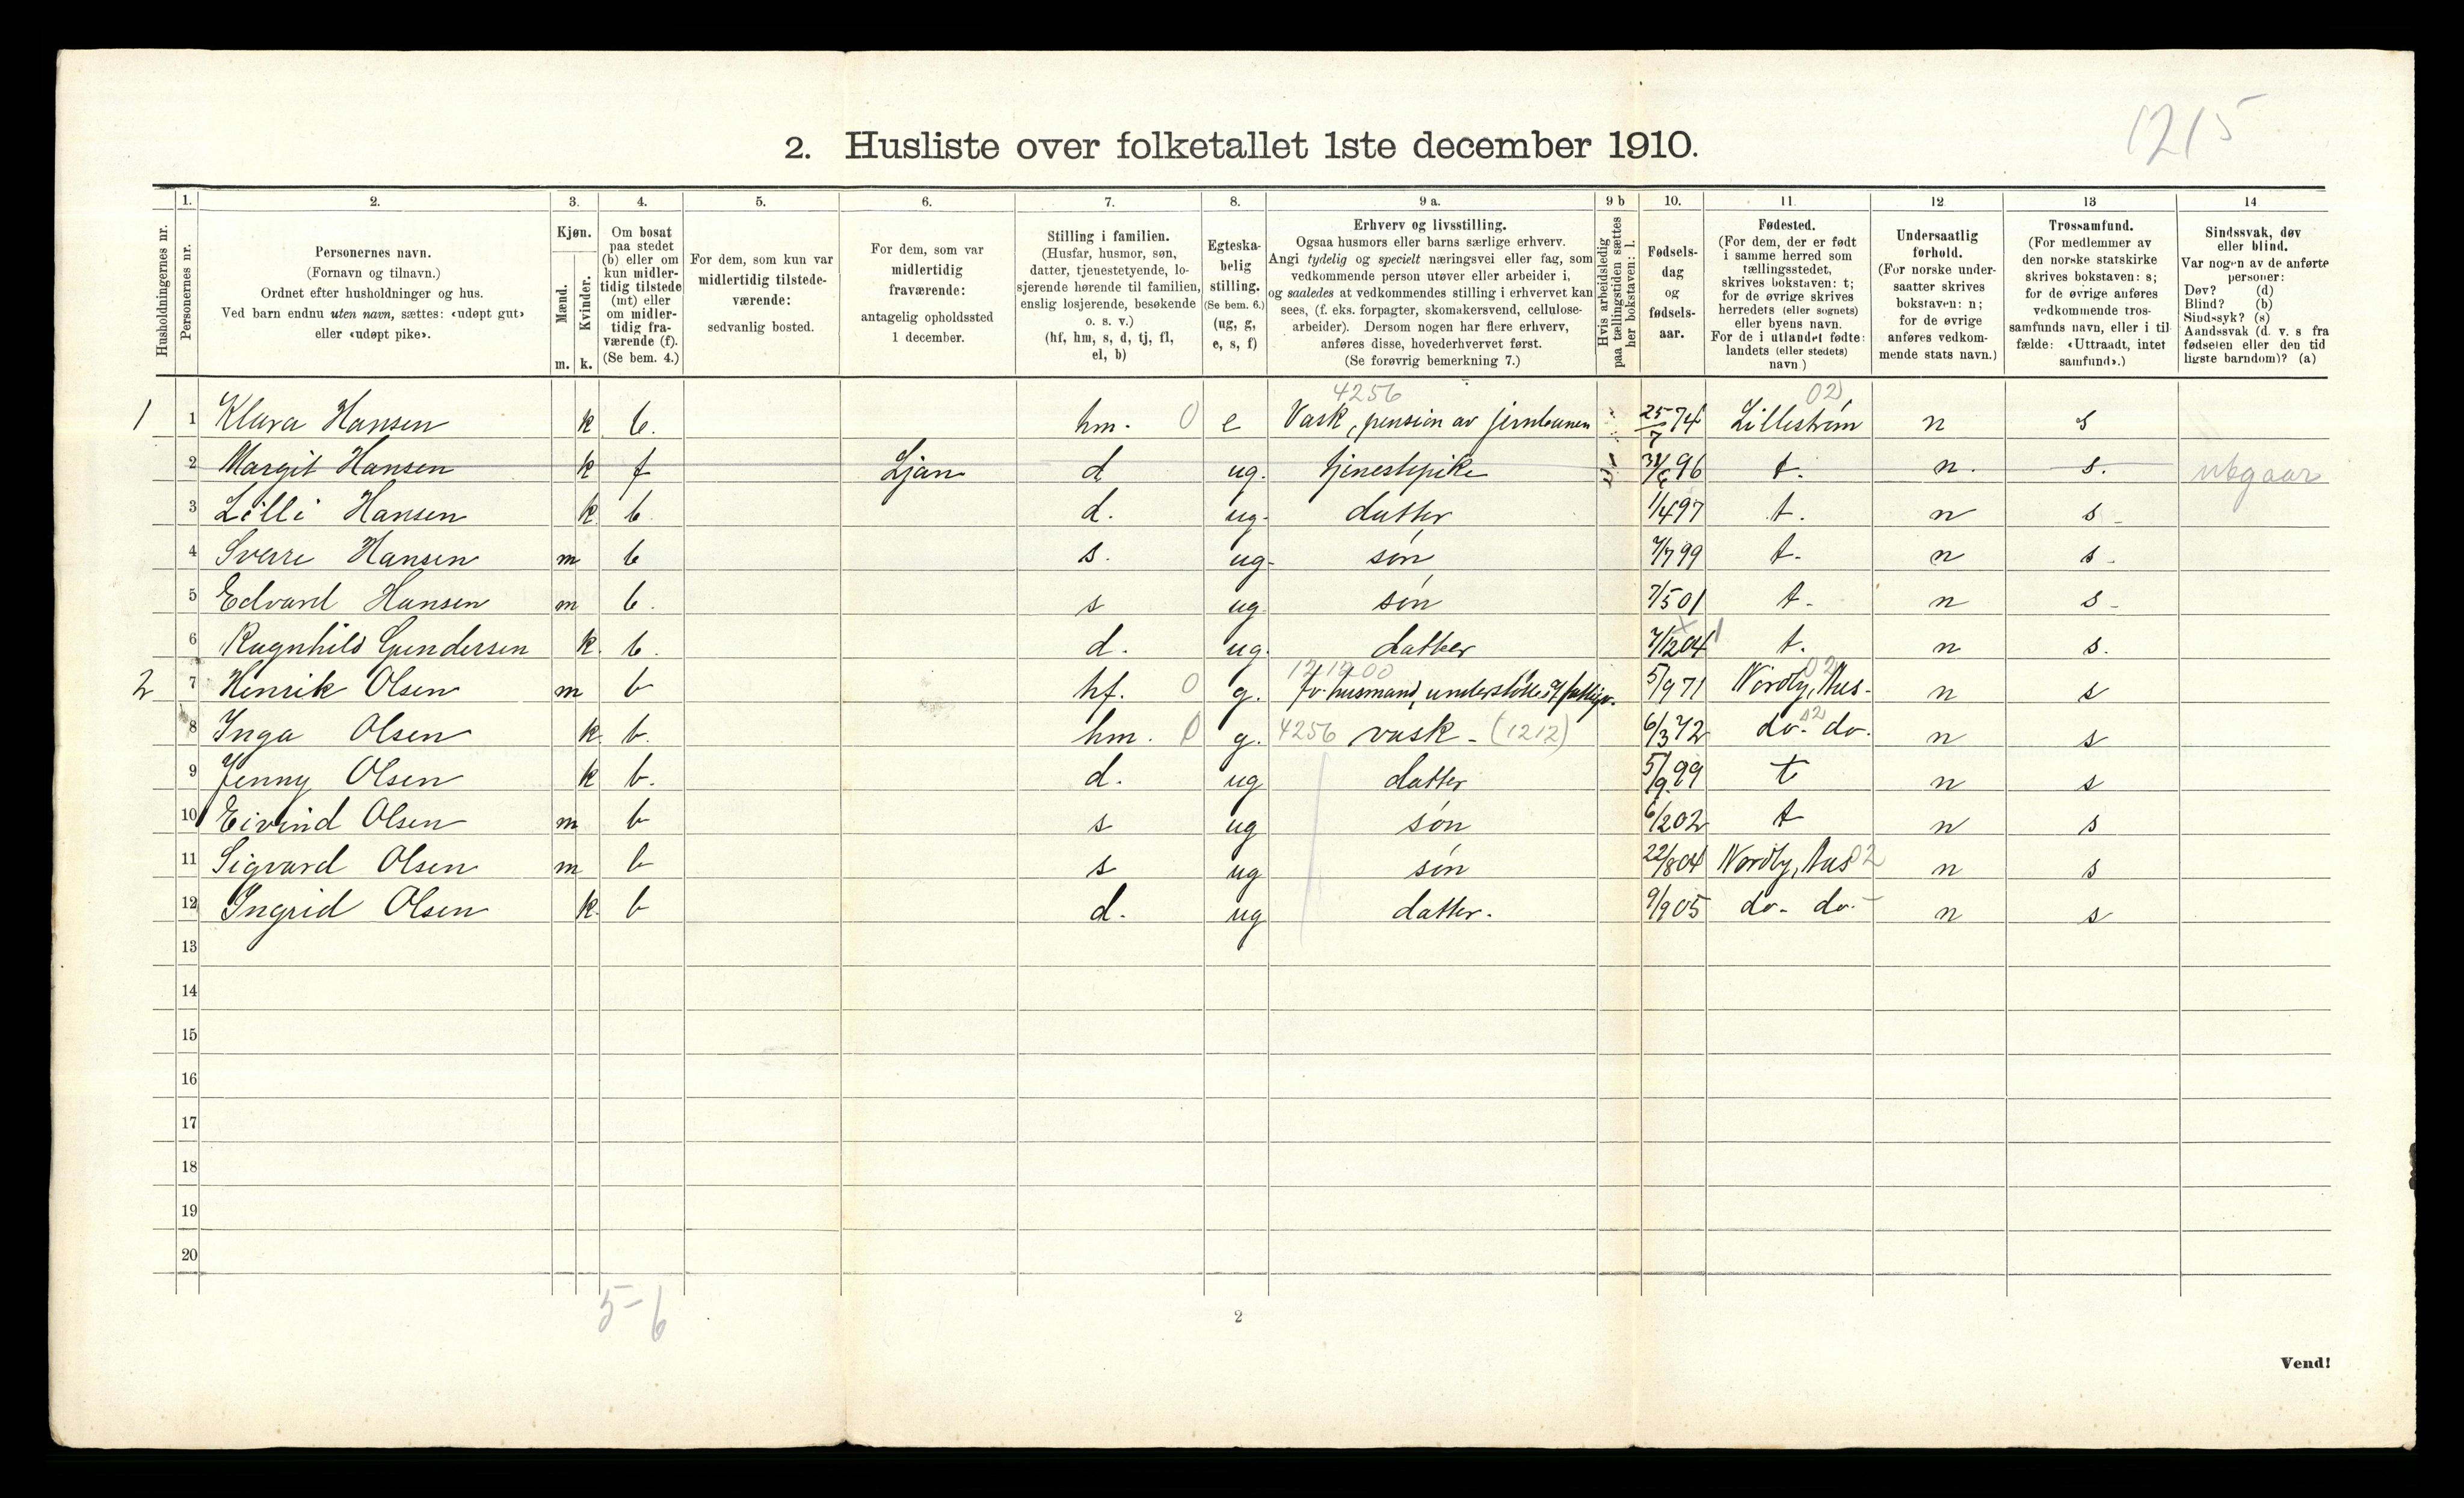 1215
2. Husliste over folketallet 1ste december 1910.
Husholdningernes nr.
1.
Personernes nr.
2.
Personernes navn.
(Fornavn og tilnavn.)
Ordnet efter husholdninger og hus.
Ved barn endnu uten navn, sættes: «udøpt gut»
eller «udøpt pike».
3.
Kjøn.
Mænd.
Kvinder.
m. k.
4.
Om bosat
paa stedet
(b) eller om
kun midler-
tidig tilstede
(mt) eller
om midler-
tidig fra-
værende (f).
(Se bem. 4.)
5.
For dem, som kun var
midlertidig tilstede-
værende:
sedvanlig bosted.
6.
For dem, som var
midlertidig
fraværende:
antagelig opholdssted
1 december.
7.
Stilling i familien.
(Husfar, husmor, søn,
datter, tjenestetyende, lo-
sjerende hørende til familien,
enslig losjerende, besøkende
o. s. v.)
(hf, hm, s, d, tj, fl,
el, b)
8.
Egteska-
belig
stilling.
(Se bem. 6.)
(ug, g,
e, s, f)
9 a.
Erhverv og livsstilling.
Ogsaa husmors eller barns særlige erhverv.
Angi tydelig og specielt næringsvei eller fag, som
vedkommende person utøver eller arbeider i,
og saaledes at vedkommendes stilling i erhvervet kan
sees, (f. eks. forpagter, skomakersvend, cellulose-
arbeider). Dersom nogen har flere erhverv,
anføres disse, hovederhvervet først.
(Se forøvrig bemerkning 7.)
9 b
Hvis arbeidsledig
paa tællingstiden sættes
her bokstaven: l.
10.
Fødsels-
dag
og
fødsels-
aar.
11
Fødested.
(For dem, der er født
i samme herred som
tællingsstedet,
skrives bokstaven: t;
for de øvrige skrives
herredets (eller sognets)
eller byens navn.
For de i utlandet fødte:
landets (eller stedets)
navn.)
12
Undersaatlig
forhold.
(For norske under-
saatter skrives
bokstaven: n;
for de øvrige
anføres vedkom-
mende stats navn.)
13
Trossamfund.
(For medlemmer av
den norske statskirke
skrives bokstaven: s;
for de øvrige anføres
vedkommende tros-
samfunds navn, eller i til
fælde: «Uttraadt, intet
samfund».)
14
Sindssvak, døv
eller blind.
Var nogen av de anførte
personer:
Døv? (d)
Blind? (b)
Sindssyk? (s)
Aandssvak (d. v. s fra
fødselen eller den tid
ligste barndom)? (a)
4256 02
1 1 Klara Hansen k b. hm. 0 e Vask, pension av jernbanen 25/7 74 Lillestrøm n s
2 Margit Hansen k f Ljan d ug. tjenestepike 96 t. n. s. utgaar
3 Lilli Hansen k b d. ug. datter 1/4 97 t. n s
4 Sverre Hansen m b s. ug. søn 7/7 99 t. n s.
5 Edvard Hansen m b. s ug søn 7/5 01 t. n s
6 Ragnhild Gundersen k. b. d. ug. datter 7/12 04 t. n s.
121200 02
2 7 Henrik Olsen m b hf. 0 g. fv. husmand, understøttes af fattigv. 5/9 71 Nordby, Aas. n s
8 Inga Olsen k. b. hm. 0 g. 4256 vask - (1212) 6/3 72 do. 02 do. n s
9 Jenny Olsen k b. d. ug datter 5/9 99 t n s
10 Eivind Olsen m b s ug søn 6/2 02 t n s
11 Sigvard Olsen m b s ug søn 22/8 04 Nordby, Aas 02 n s
12 Ingrid Olsen k. b d. ug datter. 9/9 05 do. do. n s
13
14
15
16
17
18
19
20
5-6
2
Vend!